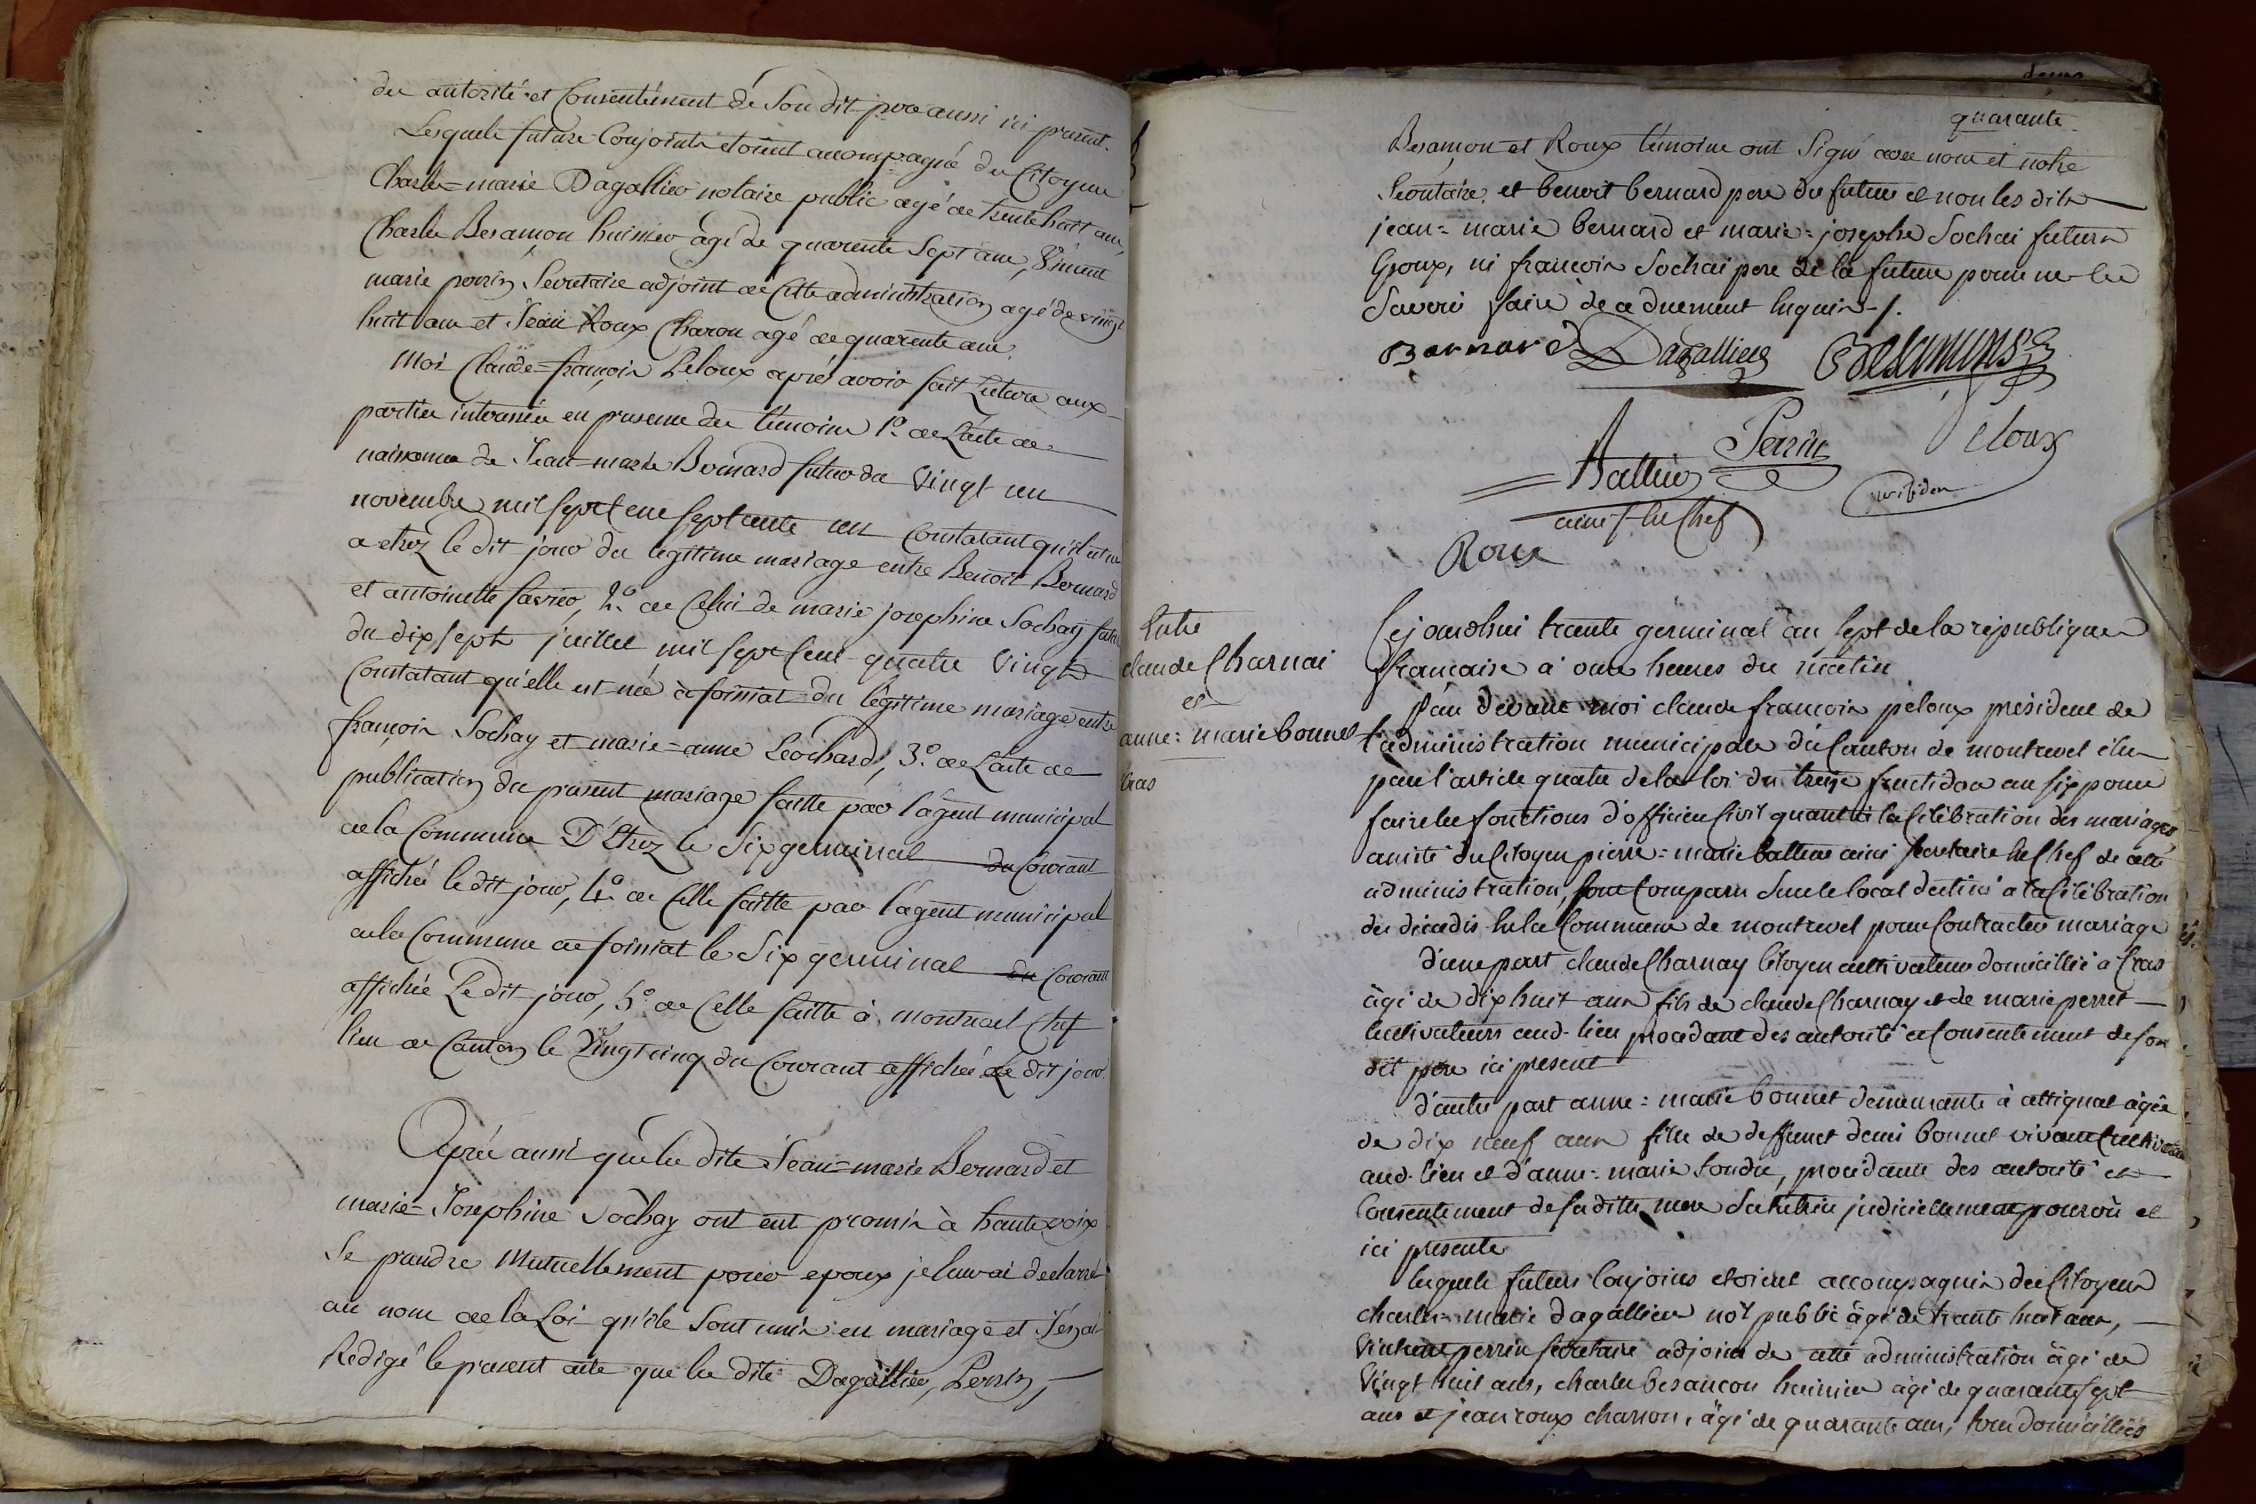 des autorité et Consentement de Son dit pere aussi ici present.
Lesquels futurs Conjoints etoient accompagné des Citoyens
Charle=marie Dagallier notaire public agé de trente huit ans,
Charle Besançon huissier agé de quarente Sept ans, Vincent
marie perrin Secretaire adjoint de Cette administration agé de vingt
huit ans et Jean Roux Charon agé de quarente ans.
Moi Claude=françois Peloux aprés avoir fait Lecture aux
parties interessées en presence des temoins 1º. de L'acte de
naissance de Jean=marie Bernard futur du vingt un
novembre mil sept cent septante un Constatant qu'il est né
a etrez le dit jour du legitime mariage entre Benoit Bernard
et antoinette favier, 2º. de Celui de marie josephine Sochay future
du dix sept juillet mil sept Cent quatre vingt
Constatant qu'elle est née à foissiat du légitime mariage entre
françois Sochay et marie=anne Leochard, 3º. de L'acte de
publication du present mariage faitte par l'agent municipal
de la Commune D'Etrez le Six germinal du Courant
affichée le dit jour, 4º. de Celle faitte par l'agent municipal
de la Commune de foissiat le Six germinal du Courant
affichée Le dit jour, 5º. de Celle faitte à montrevel Chef
lieu de Canton le Vingt cinq du Courant affichée le dit jour.
Aprés aussi que les dits Jean=marie Bernard et
marie=Josephine Sochay ont eut promis à haute voix
Se prendre Mutuellement pour epoux je leur ai declarré
au nom de la Loi qu'ils Sont unis en mariage et J'en ai
Redigé le present acte que les dits Dagallier, Perrin,
quarante
Besançon et Roux temoins ont Signé avec nous et notre
Secretaire, et benoit bernard pere du futur et non les dits
jean=marie bernard et marie=josephe Sochai futurs
Epoux, ni françois Sochai pere de la future pour ne les
Savoir faire de a duement enquis ./.
Barnard Dagallier
Perrin Peloux
Ballin
ainé s. en Chef
president
Roux
Entre
claude Charnai
et
anne=marie bonnet
Cras
Cejourdhui trente germinal an sept de la république
française à onze heures du matin
Par devant moi claude françois peloux président de
l'administration municipale du Canton de montrevel élu
par l'article quatre de la loi du treize fructidor an six pour
faire les fonctions d'officier Civil quant à la Célébration des mariages,
assisté du Citoyen pierre=marie ballin ainé secretaire en Chef de cette
administration, sont Comparu Sur le local destiné a la Célébration
des décadis en la Commune de montrevel pour Contracter mariage
d'une part claude Charnay Citoyen cultivateur domicillié a Cras
âgé de dix huit ans fils de claude Charnay et de marie perret
cultivateurs aud. lieu procédant des autorité et Consentement de son
dit pere ici présent
d'autre part anne=marie bonnet demeurante à attignat âgée
de dix neuf ans fille de deffunct denis bonnet vivant Cultivateur
aud. lieu et d'anne=marie tondu, procédante des autorité et
Consentement de sa dite mere Sa tutrice judiciellement pourvû et
ici présente
lesquels futurs Conjoins etoient accompagnés des Citoyens
charles=marie dagallier not. public âgé de trente huit ans,
Vincent perrin secretaire adjoint de cette administration âgé de
Vingt huit ans, charles besancon huissier âgé de quarante sept
ans et jean roux charron, âgé de quarante ans, tous domicilliés